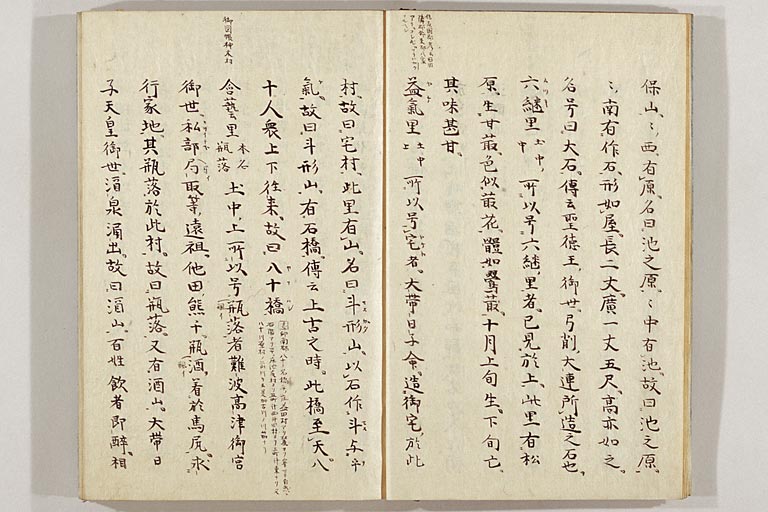 保山〻西有原名曰池之原〻中有池故曰池之原
〻南有作石形如屋長二丈廣一丈五尺高亦如之
名号曰大石傳云聖徳王御世弓削大連所造之石也
六継里 土中〻 所以号六継里者已見於上此里有松
原生甘蕈色似蕈花體如鶯蕈十月上旬生下旬亡
其味甚甘
益氣里 土中上 所以号宅者大帯日子命造御宅於此
村故曰宅村此里有山名曰斗形山以石作斗与乎
氣故曰斗形山有石橋傳云上古之時此橋至天八
十人衆上下往来故曰八十橋
含藝里 本名瓶落 土中上 所以号瓶落者難波高津御宮
御世私部局取等遠祖他田熊千瓶酒着於馬尻求
行家地其瓶落於此村故曰瓶落又有酒山大帯日
子天皇御世酒泉涌出故曰酒山百姓飲者即醉相